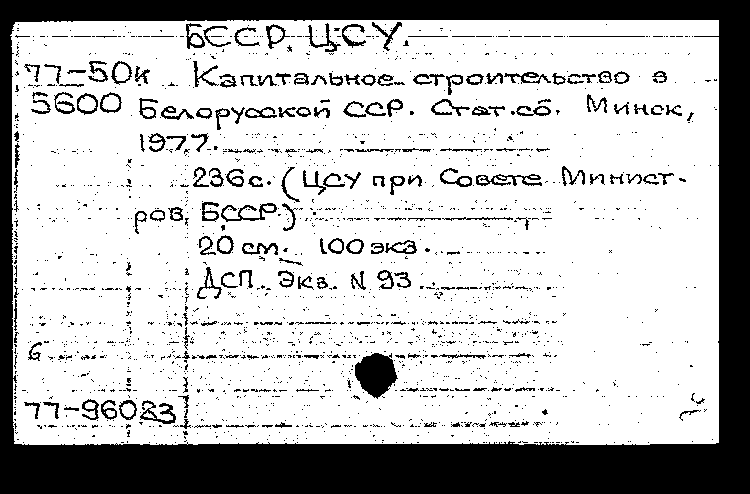 БССР. ЦСУ.
77-50к Капитальное строительство в
5600 Белорусской ССР. Стат.сб. Минск,
1977.
236с. (ЦСУ при Совете Минист-
ров БССР)
20 см. 100 экз.
ДСП. Экз. N 93.
6
77-96023